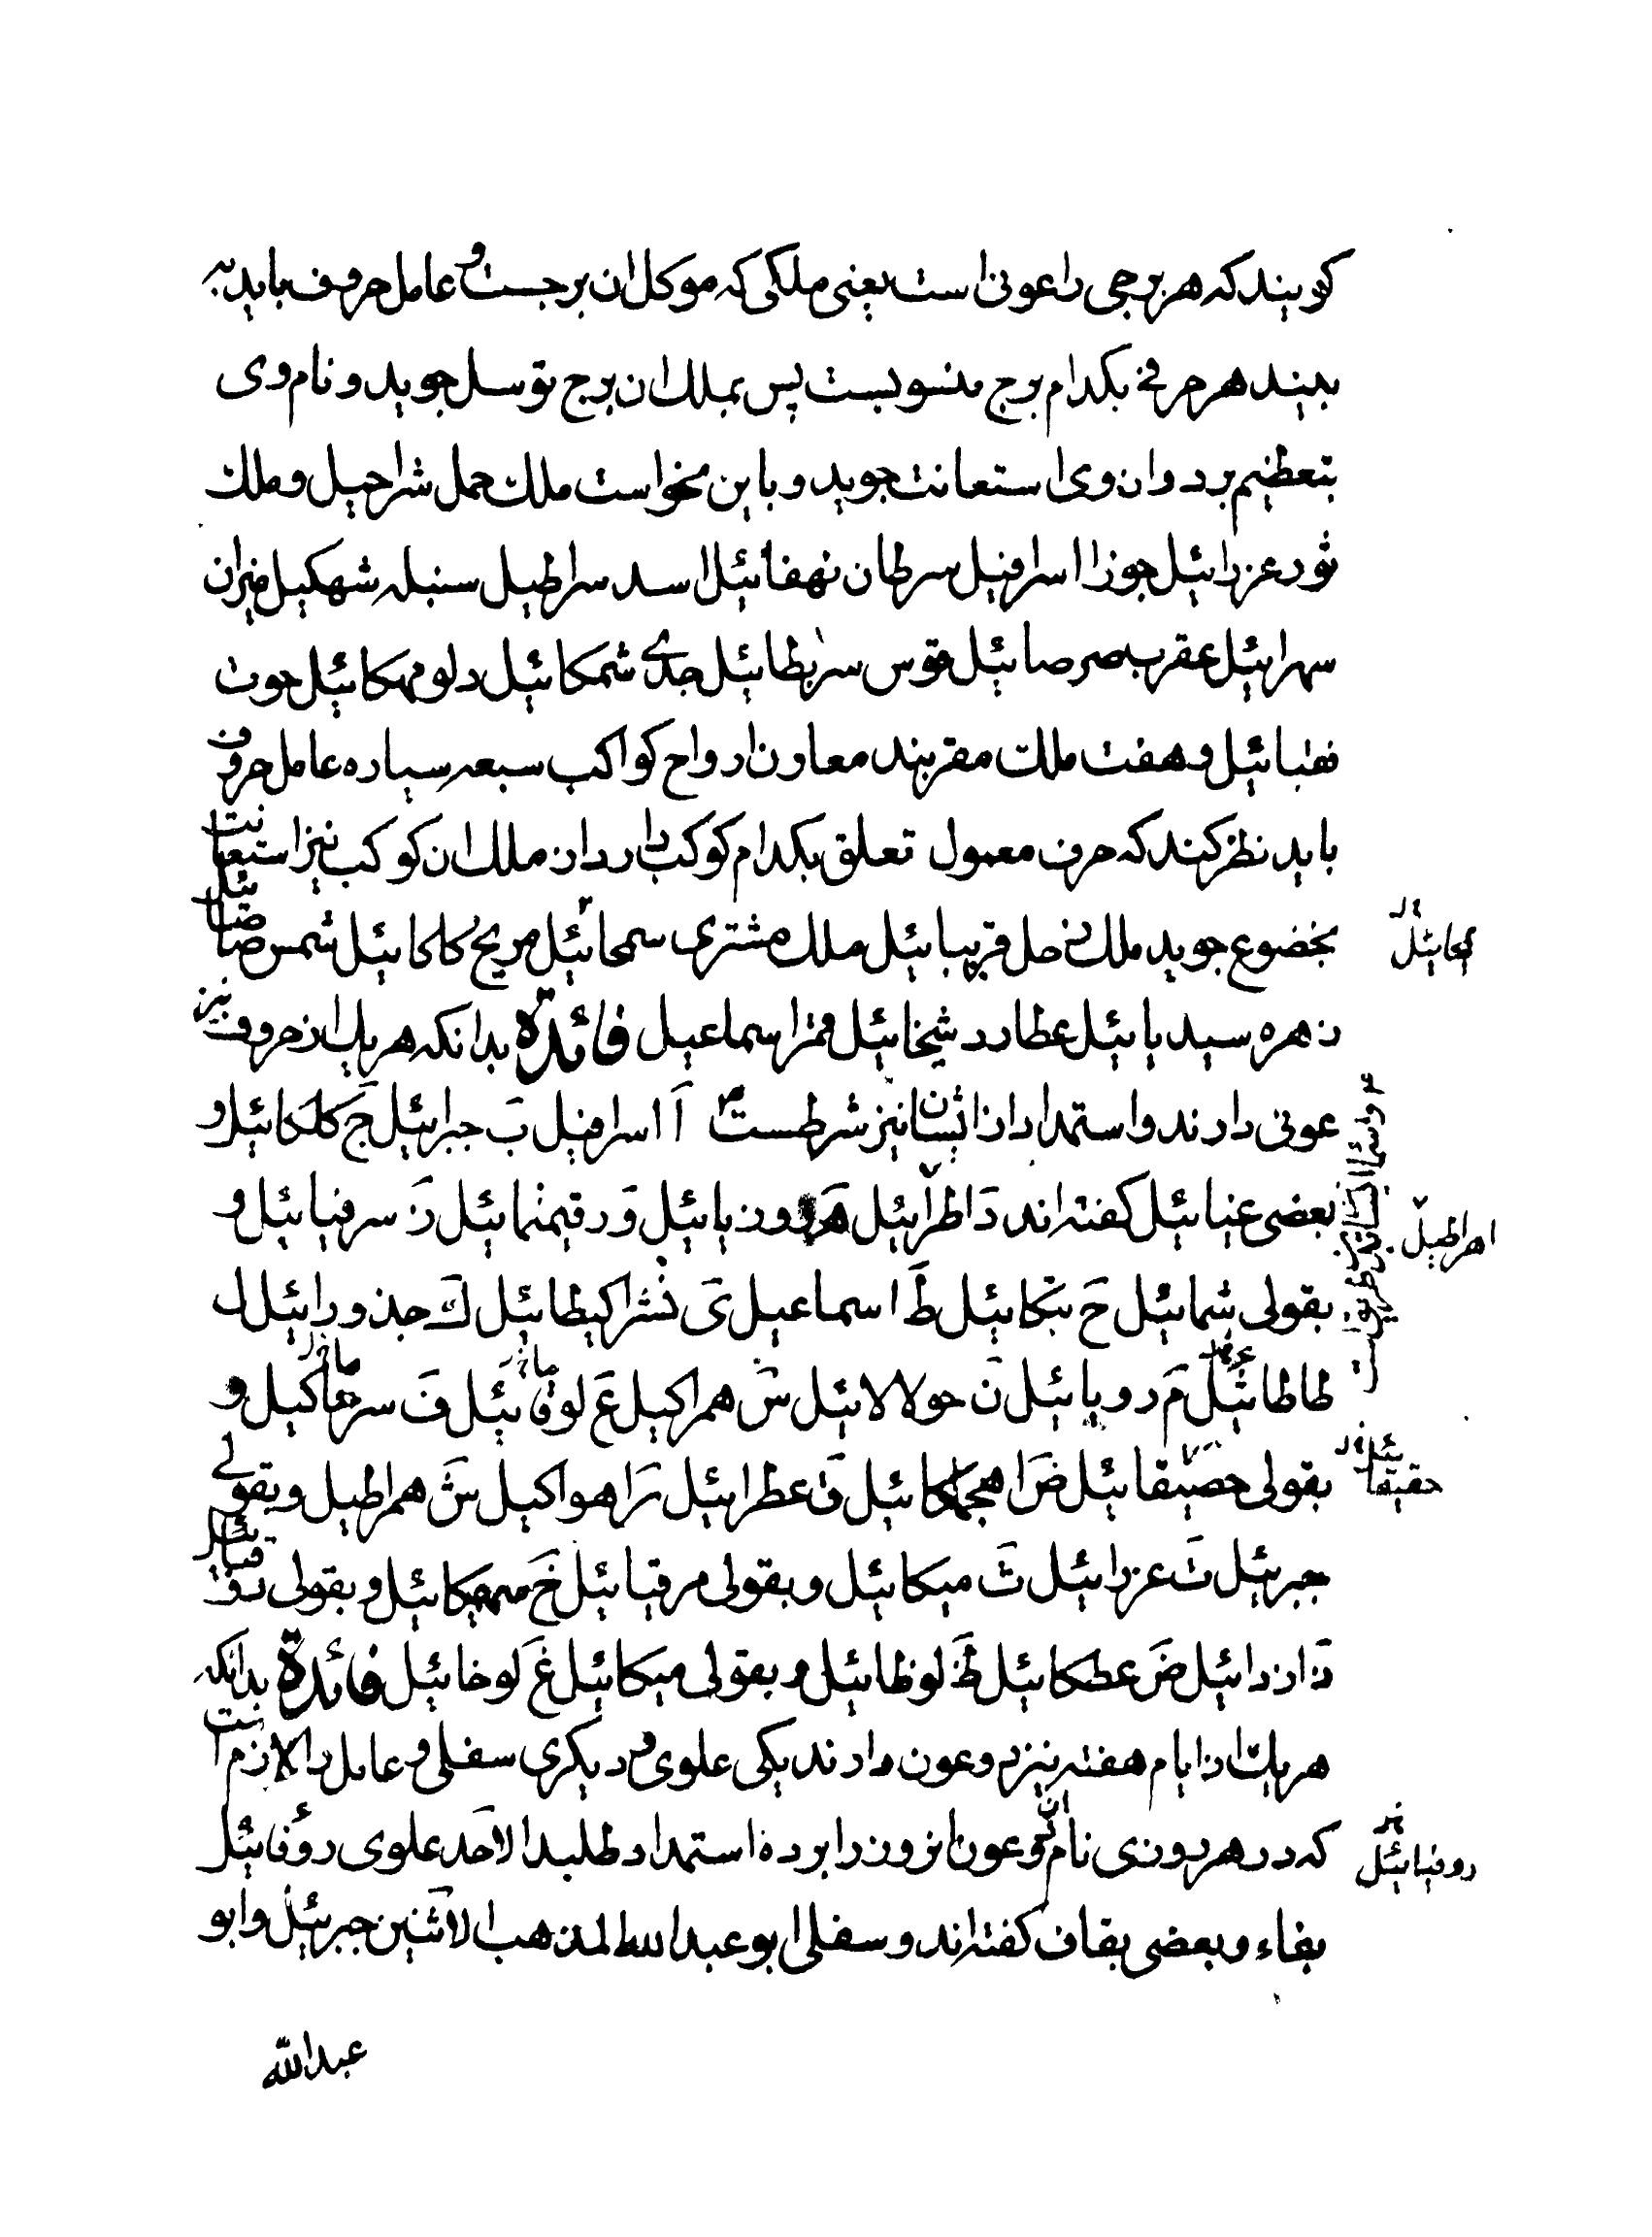 کویند که هر برجی را عونی است یعنی ملکی که موکل ان برجست و عامل حروف باید به
بیند هر حرفی بکدام برج منسوبست پس بملک ان برج توسل جوید و نام وی
بتعظیم برد و ان وی استعانت جوید و باین نحو است ملک حمل شراحیل و ملک
ثور عزرائیل جوزا اسرافیل سرطان نهفائیل اسد سراطیل سنبله شهکیل میزان
سهرائیل عقرب صرصائیل قوس سریطائیل جدی شمکائیل دلو مهکائیل حوت
فقبائیل و هفت ملک مقربند معاون ارواح کواکب سبعه سیاره عامل حروف
باید نظر کند که حرف معمول تعلق بکدام کوکب دارد از ملک ان کوکب نیز استعانت
بخضوع جوید ملک زحل قریبائیل ملک مشتری سمحائیل مریخ کاکائیل شمس
زهره سیدیائیل عطارد شیخائیل قمر اسماعیل فائدة بدانکه هر یک از حروف نیز
عونی دارند و استمداد از ایشان نیز شرطست آ اسرافیل ب جبرائیل ج کلکائیل و
بعضی عنیائیل کفته اند د اطرائیل ه روزیائیل و رقیمائیل ز سرفیائیل و
بقولی شمائیل ح بتکائیل ط اسماعیل ی شراکیطائیل ک جذورائیل ل
طاطائیل م رویائیل ن حولالائیل س همراکیل ع لومائیل ف سرعاکیل و
بقولی حصیقائیل ص اهجمائیل ق عطرائیل ر اهواکیل ش همراطیل و بقولی
جبرئیل ت عزرائیل ث میکائیل و بقولی مرقیائیل خ مهیکائیل و بقولی
ذ ازرائیل ض عطکائیل ظ لوظائیل و بقولی میکائیل غ لوخائیل فائدة بدانکه
هر یک از ایام هفته نیز دو عون دارند یکی علوی و دیکری سفلی و عامل را لازم است
که در هر روزی نام دو عون ان روز را برده استمداد طلبد الاحد علوی روفائیل
بفاء و بعضی بقاف کفته اند و سفلی ابو عبدالله المذهب الاثنین جبرئیل و ابو
اهراطیل
حقیقائیل
روفیائیل
عبدالله